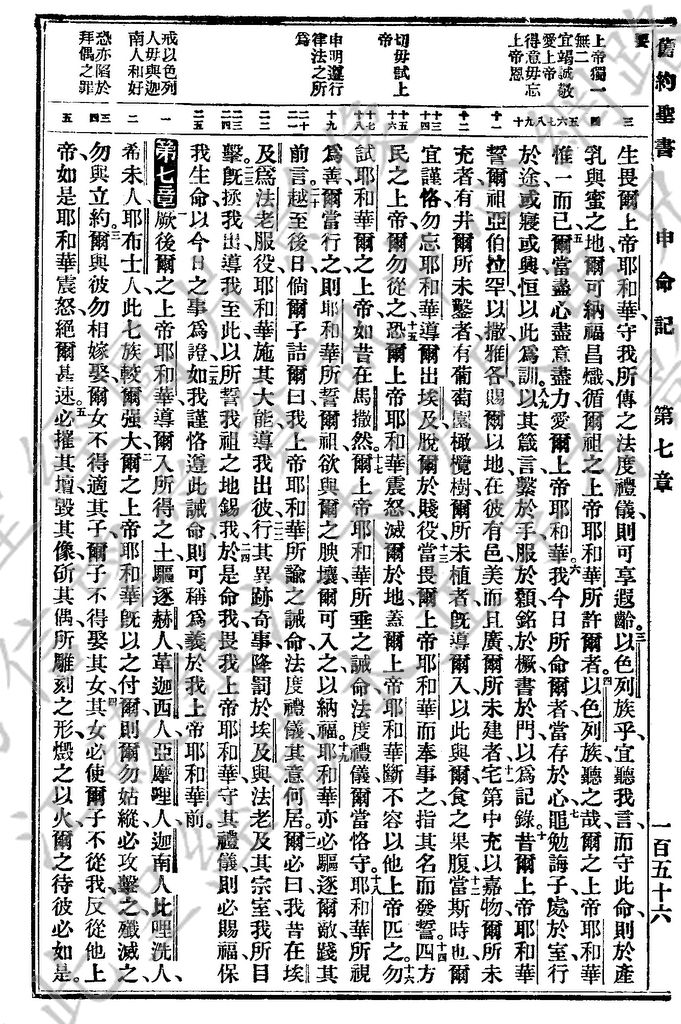 舊約聖書 申命記 第七章 一百五十六
要
上帝獨一
無二
宜竭誠敬
愛上帝
得意毋忘
上帝恩
切毋試上
帝
申明遵行
律法之所
爲
戒以色列
人毋與迦
南人和好
恐亦陷於
拜偶之罪
三 生畏爾上帝耶和華守我所傳之法度禮儀則可享遐齡三以色列族乎宜聽我言而守此命則於產
四 乳與蜜之地爾可納福昌熾循爾祖之上帝耶和華所許爾者四以色列族聽之哉爾之上帝耶和華
五六七 惟一而已五爾當盡心盡意盡力愛爾上帝耶和華六我今日所命爾者當存於心七黽勉誨子處於室行
八九十 於途或寢或興恒以此爲訓八九以其箴言繫於手服於顙銘於橛書於門以爲記錄十昔爾上帝耶和華
十一 誓爾祖亞伯拉罕以撒雅各賜爾以地在彼有邑美而且廣爾所未建者十一宅第中充以嘉物爾所未
十二 充者有井爾所未鑿者有葡萄園橄欖樹爾所未植者旣導爾入以此與爾食之果腹十二當斯時也爾
十三十四 宜謹恪勿忘耶和華導爾出埃及脫爾於賤役十三當畏爾上帝耶和華而奉事之指其名而發誓十四四方
十五十六 民之上帝爾勿從之十五恐爾上帝耶和華震怒滅爾於地蓋爾上帝耶和華斷不容以他上帝匹之十六勿
十七十八 試耶和華爾之上帝如昔在馬撒然十七爾上帝耶和華所垂之誡命法度禮儀爾當恪守十八耶和華所視
十九 爲善爾當行之則耶和華所誓爾祖欲與爾之腴壤爾可入之以納福十九耶和華亦必驅逐爾敵踐其
二十二一 前言二十越至後日倘爾子詰爾曰我上帝耶和華所諭之誡命法度禮儀其意何居二一爾必曰我昔在埃
二二 及爲法老服役耶和華施其大能導我出彼二二行其異跡奇事降罰於埃及與法老及其宗室我所目
二三二四 擊二三旣拯我出導我至此以所誓我祖之地錫我二四於是命我畏我上帝耶和華守其禮儀則必賜福保
二五 我生命以今日之事爲證二五如我謹恪遵此誡命則可稱爲義於我上帝耶和華前
一 第七章一厥後爾之上帝耶和華導爾入所得之土驅逐赫人革迦西人亞摩哩人迦南人比哩洗人
二 希未人耶布士人此七族較爾強大二爾之上帝耶和華旣以之付爾則爾勿姑縱必攻擊之殲滅之
三四 勿與立約三爾與彼勿相嫁娶爾女不得適其子爾子不得娶其女四其女必使爾子不從我反從他上
五 帝如是耶和華震怒絕爾甚速五必摧其壇毀其像斫其偶所雕刻之形燬之以火爾之待彼必如是